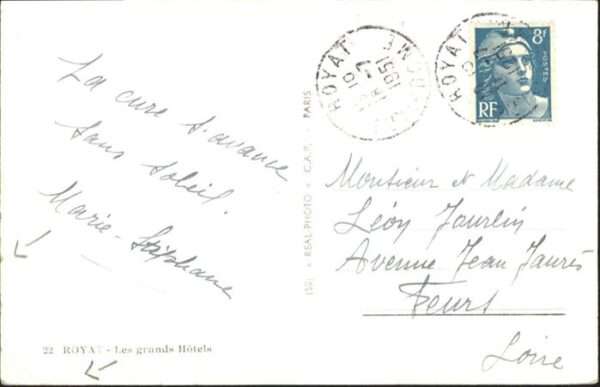 La cure s'avance
sans soleil.
Marie-Stéphane
22 ROYAT - Les grands Hôtels
REAL-PHOTO • C.A.P. • PARIS
ROYAT
1951
ROYAT
8F
POSTES
RF
Monsieur et Madame
Léon Jaurlin
Avenue Jean Jaurès
Feurs
Loire